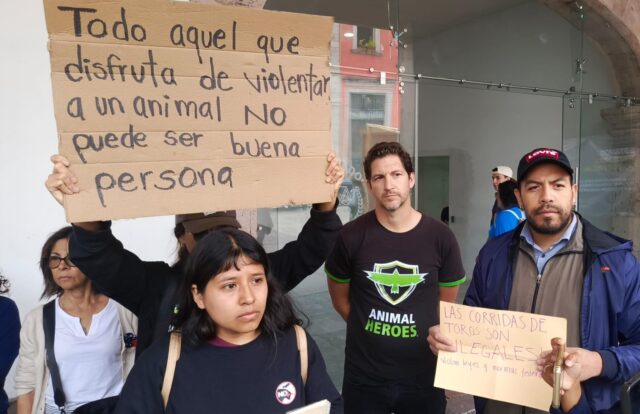 Todo aquel que
disfruta de violentar
a un animal NO
puede ser buena
persona
ANIMAL
HEROES
Levi's
LAS
CORRIDAS DE
TOROS SON
ILEGALES
Violan leyes y normas
NO